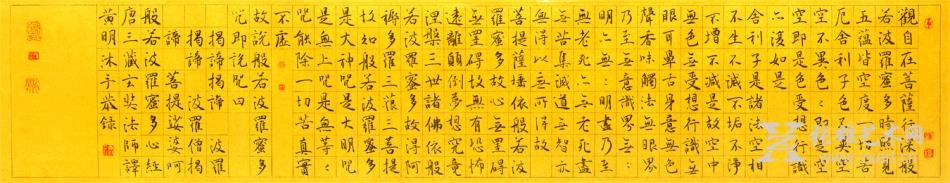 觀自在菩薩行深般
若波羅蜜多時照見
五蘊皆空度一切苦
厄舍利子色不異空
空不異色〻即是空
空即是色受想行識
亦復如是
舍利子是諸法空相
不生不滅不垢不淨
不增不減是故空中
無色無受想行識無
眼耳鼻舌身意無色
聲香味觸法無眼界
乃至無意識界無〻
明亦無〻明盡乃至
無老死亦無老死盡
無苦集滅道無智亦
無得以無所得故
菩提薩埵依般若波
羅蜜多故心無罣礙
無罣礙故無有恐怖
遠離顛倒夢想究竟
涅槃三世諸佛依般
若波羅蜜多故得阿
耨多羅三藐三菩提
故知般若波羅蜜多
是大神呪是大明呪
是無上呪是無等〻
呪能除一切苦真實
不虛
故說般若波羅蜜多
呪即說呪曰
揭諦揭諦 波羅
揭諦 波羅僧揭
諦 菩提娑婆訶
般若波羅蜜多心經
唐三藏玄奘法師譯
黃明沐手敬錄
张雄艺术网